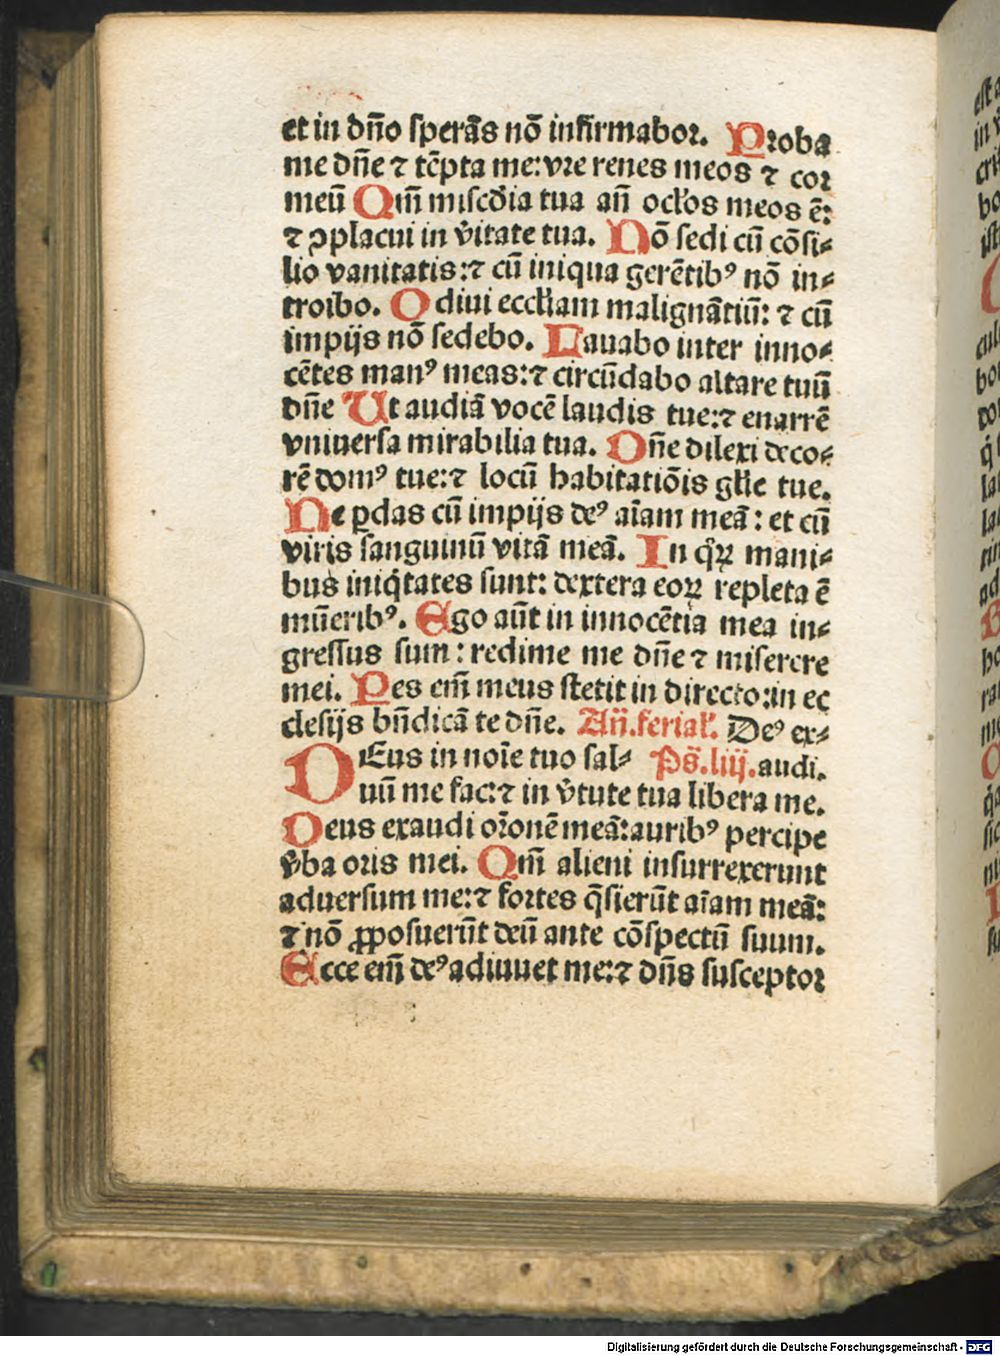 et in dn̄o ſperās nō infirmaboꝛ. Pꝛoba
me dn̄e ⁊ tēpta me: vꝛe renes meos ⁊ coꝛ
meū Qm̄ miſcd̄ia tua an̄ ocłos meos ē:
⁊ ꝯplacui in v̄itate tua. Nō ſedi cū cōſi⸗
lio vanitatis:⁊ cū iniqua gerētibꝰ nō in⸗
troibo. Odiui eccłiam malignātiū: ⁊ cū
impijs nō ſedebo. Lauabo inter inno⸗
cētes manꝰ meas:⁊ circūdabo altare tuū
dn̄e Ut audiā vocē laudis tue:⁊ enarrē
vniuerſa mirabilia tua. Dn̄e dilexi deco⸗
rē domꝰ tue:⁊ locū habitatiōis głie tue.
Ne ꝑdas cū impijs deꝰ aīam meā: et cū
viris ſanguinū vitā meā. In qͦꝝ mani⸗
bus iniqͥtates ſunt: dextera eoꝝ repleta ē
mūeribꝰ. Ego aūt in innocētia mea in⸗
greſſus ſum: redime me dn̄e ⁊ miſerere
mei. Pes em̄ meus ſtetit in directo:in ec
cleſijs bn̄dicā te dn̄e. An̄.ferial'. Deꝰ ex⸗
DEus in noīe tuo ſal⸗ Ps̄.liij.audi.
uū me fac:⁊ in v̄tute tua libera me.
Deus exaudi oꝛonē meā:auribꝰ percipe
v̄ba oꝛis mei. Qm̄ alieni inſurrexerunt
aduerſum me:⁊ foꝛtes q̄ſierūt aīam meā:
⁊ nō ꝓpoſuerūt deū ante cōſpectū ſuum.
Ecce em̄ deꝰ adiuuet me:⁊ dn̄s ſuſceptoꝛ
Digitalisierung gefördert durch die Deutsche Forschungsgemeinschaft - DFG